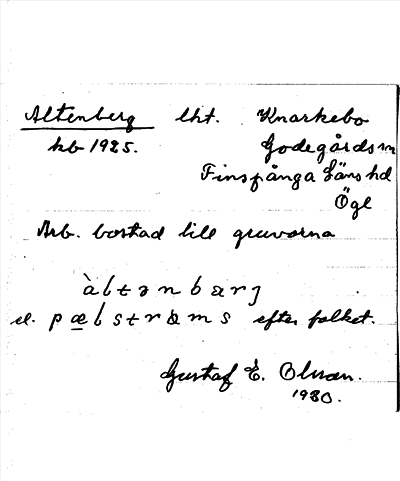 Altenberg lht. Knarkebo
kb 1925. Godegårds sn
Finspånga Läns hd
Ögl
Arb. bostad till gruvorna
àltənbarj
el. pæbstrɷms efter folket.
Gustaf E. Olsson.
1930.